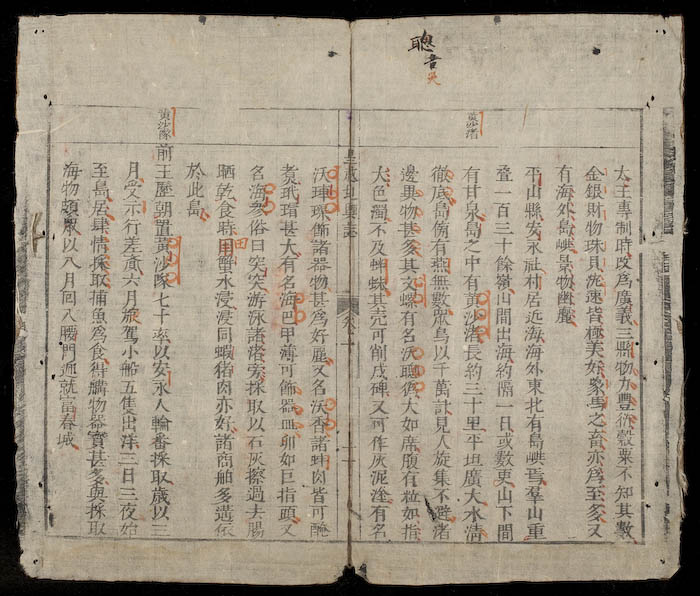 聰
音
黃沙渚
太王專制時改爲廣義三縣物力豐衍穀粟不知其數
金銀財物珠貝洸逨皆極美好象馬之畜亦爲至多又
有海外島嶼景物幽麗
平山縣安永社村居近海海外東北有島嶼焉羣山重
疊一百三十餘嶺山間出海約隔一日或數更山下間
有甘泉島之中有黃沙渚長約三十里平坦廣大水清
徹底島傍有燕無數眾鳥以千萬計見人旋集不避渚
邊異物甚多其文螺有名沃聰大如席腹有粒如指
大色濁不及蚌蛛其壳可削成碑又可作灰泥塗有名
皇越地輿誌 卷之一
沃硨磲飾諸器物甚爲好麗又名沃香諸蚌肉皆可醃
煑玳瑁甚大有名海巴甲薄可飾器皿卵如巨指頭又
名海參俗曰突突游泳諸渚旁採取以石灰擦過去腸
晒乾食時用田蟹水浸浸同蝦猪肉亦好諸商舶多遘依
於此島
黃沙隊
前王歷朝置黃沙隊七十率以安永人輪番採取歲以三
月受示行差賫六月糧駕小船五隻出洋三日三夜始
至島居肆情採取捕魚爲食得購物器寶甚多與採取
海物頗眾以八月回入腰門逓就富春城